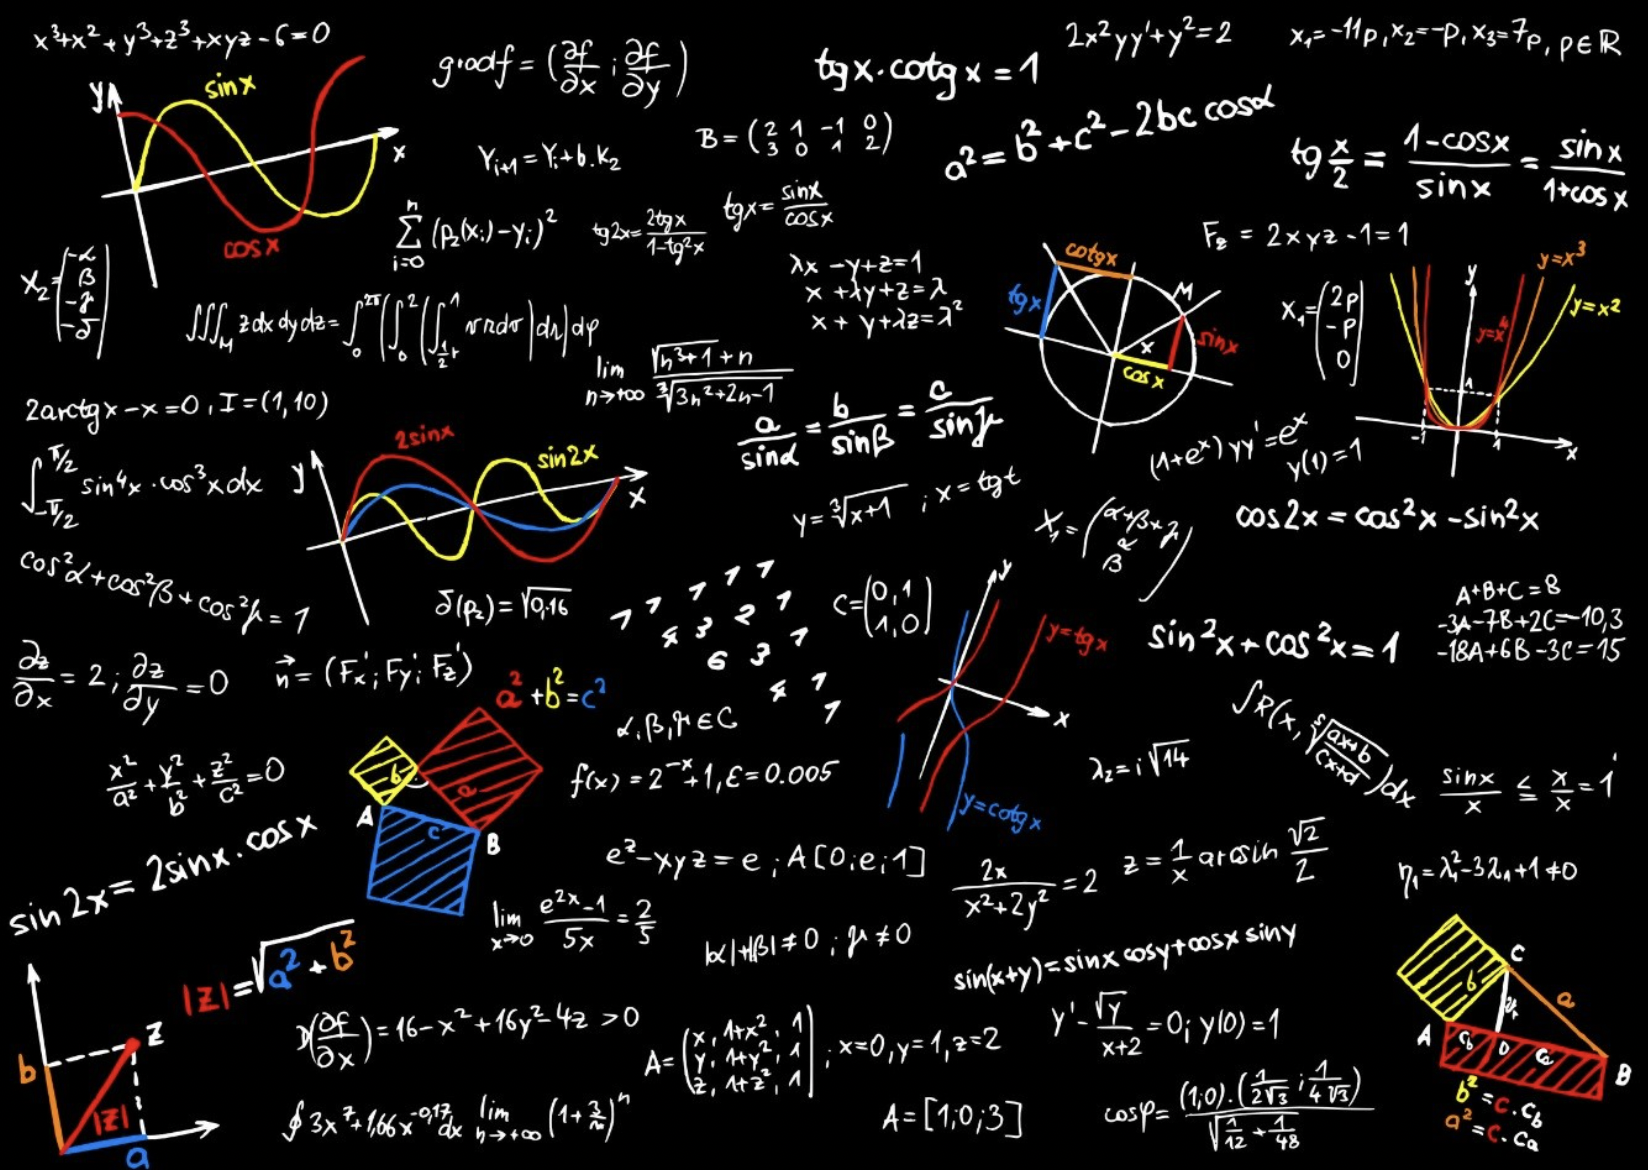 x³+x²+y³+z³+xyz-6=0
y
sinx
x
cosx
gradf = (∂f/∂x ; ∂f/∂y)
tgx.cotgx = 1
2x²yy'+y²=2
x₁=-11p, x₂=-p, x₃=7p, p∈ℝ
Y_{i+1} = Y_i + b.K₂
B = (2 1 -1 0
3 0 1 2)
a² = b²+c²-2bc cosα
tg x/2 = (1-cosx)/sinx = sinx/(1+cosx)
∑_{i=0}^{n} (p₂(x_i)-y_i)²
tg2x = 2tgx/(1-tg²x)
tgx = sinx/cosx
F₂ = 2xyz-1=1
X₂= (-α
β
-γ
-δ)
∭_M z dx dy dz =
λx -y+z=1
x +λy+z=λ
x + y+λz=λ²
cotgx
tgx
M
sinx
x
cosx
X₁= (2p
-p
0)
y
y=x³
y=x²
y=x⁴
1
-1
1
x
lim n→+∞ (√(n³+1)+n)/∛(3n²+2n-1)
2arctgx-x=0, I=(1,10)
a/sinα = b/sinβ = c/sinγ
(1+e^x)yy'=e^x
y(1)=1
∫_{-π/2}^{π/2} sin⁴x.cos³x dx
y
2sinx
sin2x
x
y=∛(x+1) ; x=tgt
X₁= (α+β+γ
α
β)
cos2x = cos²x-sin²x
cos²α+cos²β+cos²γ=1
δ(p₂)=√0,16
1 1 1 1 1
4 3 2 1
6 3 1
4 1
1
C= (0,1
1,0)
y
y=tgx
x
y=cotgx
sin²x+cos²x=1
A+B+C=8
-3A-7B+2C=-10,3
-18A+6B-3C=15
∂z/∂x = 2 ; ∂z/∂y = 0
n⃗ = (F'x ; F'y ; F'z)
a²+b²=c²
b
a
A
c
B
α,β,γ∈C
∫R(x, ⁵√((ax+b)/(cx+d)))dx
x²/a² + y²/b² + z²/c² = 0
f(x)=2^{-x}+1, ε=0.005
λ₂=i√14
sinx/x ≤ x/x = 1
sin2x = 2sinx.cosx
e^z-xyz=e ; A[0;e;1]
2x/(x²+2y²) = 2
z = 1/x arcsin √2/2
η₁=λ₁²-3λ₁+1≠0
lim x→0 (e^{2x}-1)/5x = 2/5
|α|+|β|≠0 ; γ≠0
sin(x+y)=sinx cosy+cosx siny
|z|=√(a²+b²)
z
b
|z|
a
(∂f/∂x)=16-x²+16y²-4z >0
A= (x, 1+x², 1
y, 1+y², 1
z, 1+z², 1) ; x=0, y=1, z=2
y' - √y/(x+2) = 0; y(0)=1
C
b
a
A
c_b
D
c_a
B
b²=c.c_b
a²=c.c_a
∮3x⁷+1,66x^{-0,17}dx
lim n→+∞ (1+3/n)ⁿ
A=[1;0;3]
cosφ= (1;0).(1/(2√3) ; 1/(4√3)) / √(1/12+1/48)